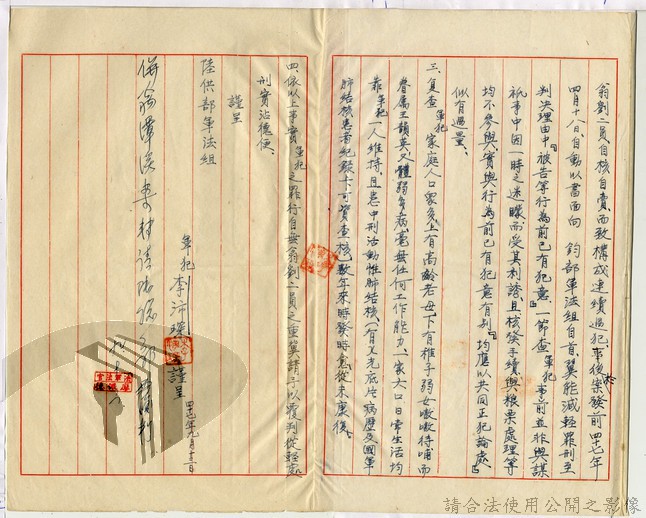 翁劉二員自核自賣而致構成連續過犯事後於案發前四十七年
四月十八日自動以書面向 鈞部軍法組自首冀能減輕罪刑至
判決理由中「被告等行為前已有犯意」一節查軍犯事前並非與謀
祇事中因一時之迷矇而受其利誘且核發手續與糧票處理等
均不參與實與行為前已有犯意有別「均應以共同正犯論處」
似有過量
三、复查軍犯家庭人口眾多上有高齡老母下有稚子弱女嗷嗷待哺而
眷属王韻英又體弱多病毫無任何工作能力一家大口日常生活均
靠軍犯一人維持且患中刑活動性肺結核(有乂光底片病歷及國軍
肺結核患者紀錄卡可資查核)数年來時發時愈從未康復
四、依以上事實軍犯之罪行自無翁劉二員之重冀請予以覆判從輕處
刑實沾德便
謹呈
陸供部軍法組
軍犯李沛
謹呈
四十七年九月十三日
請合法使用公開之影像